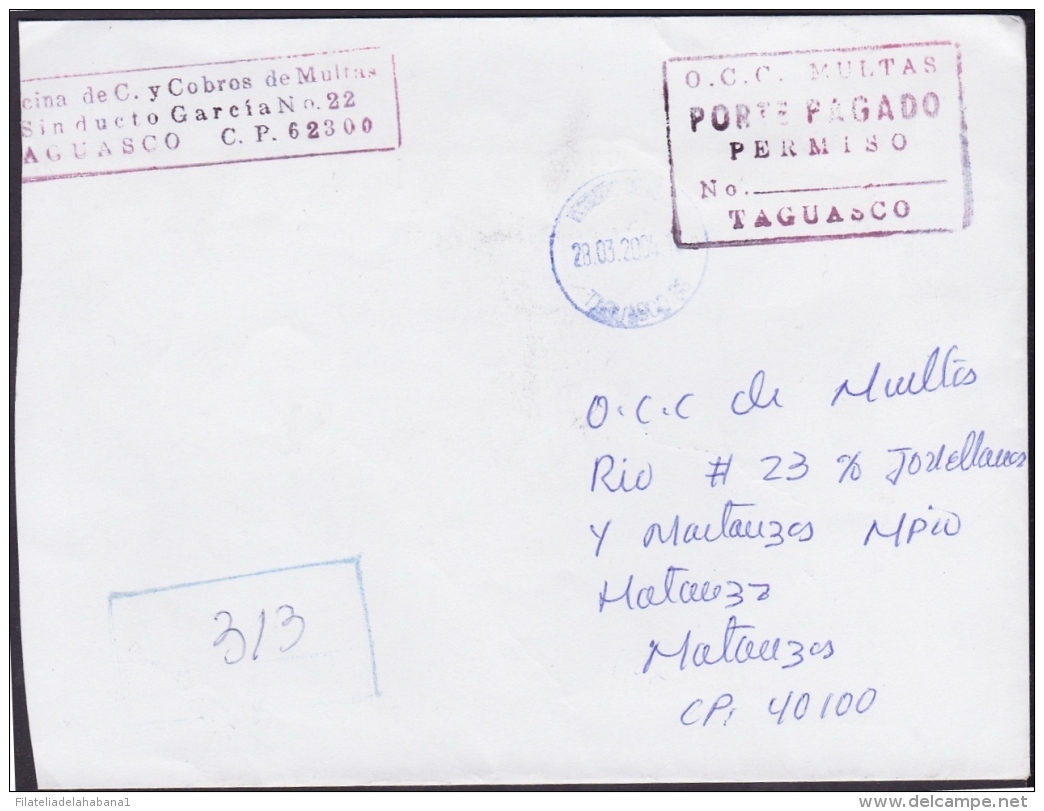 cina de C. y Cobros de Multas
Sinducto García No. 22
AGUASCO C. P. 62300
O. C. C. MULTAS
PORTE PAGADO
PERMISO
No.
TAGUASCO
28.03.200
O.C.C de Multas
Rio # 23 % Jovellanos
Y Matanzas Mpio
Matanza
Matanzas
CP: 40100
313
Filateliadelahabana1
delcampe.net